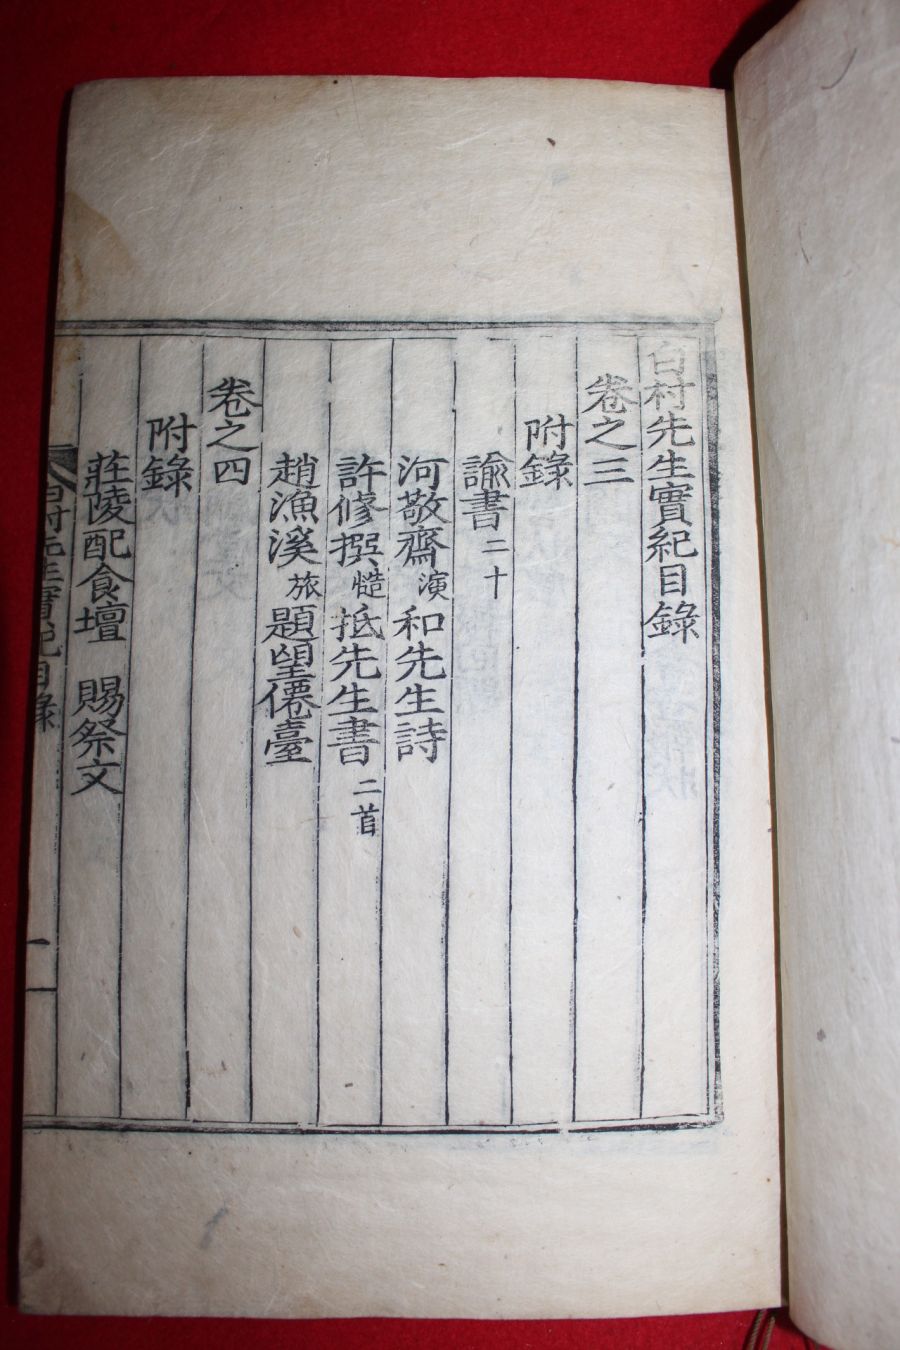 白村先生實紀目錄
卷之三
附錄
諭書二十
河敬齋演和先生詩
許修撰慥抵先生書二首
趙漁溪旅題望僊臺
卷之四
附錄
莊陵配食壇 賜祭文
白村先生實紀目錄
一